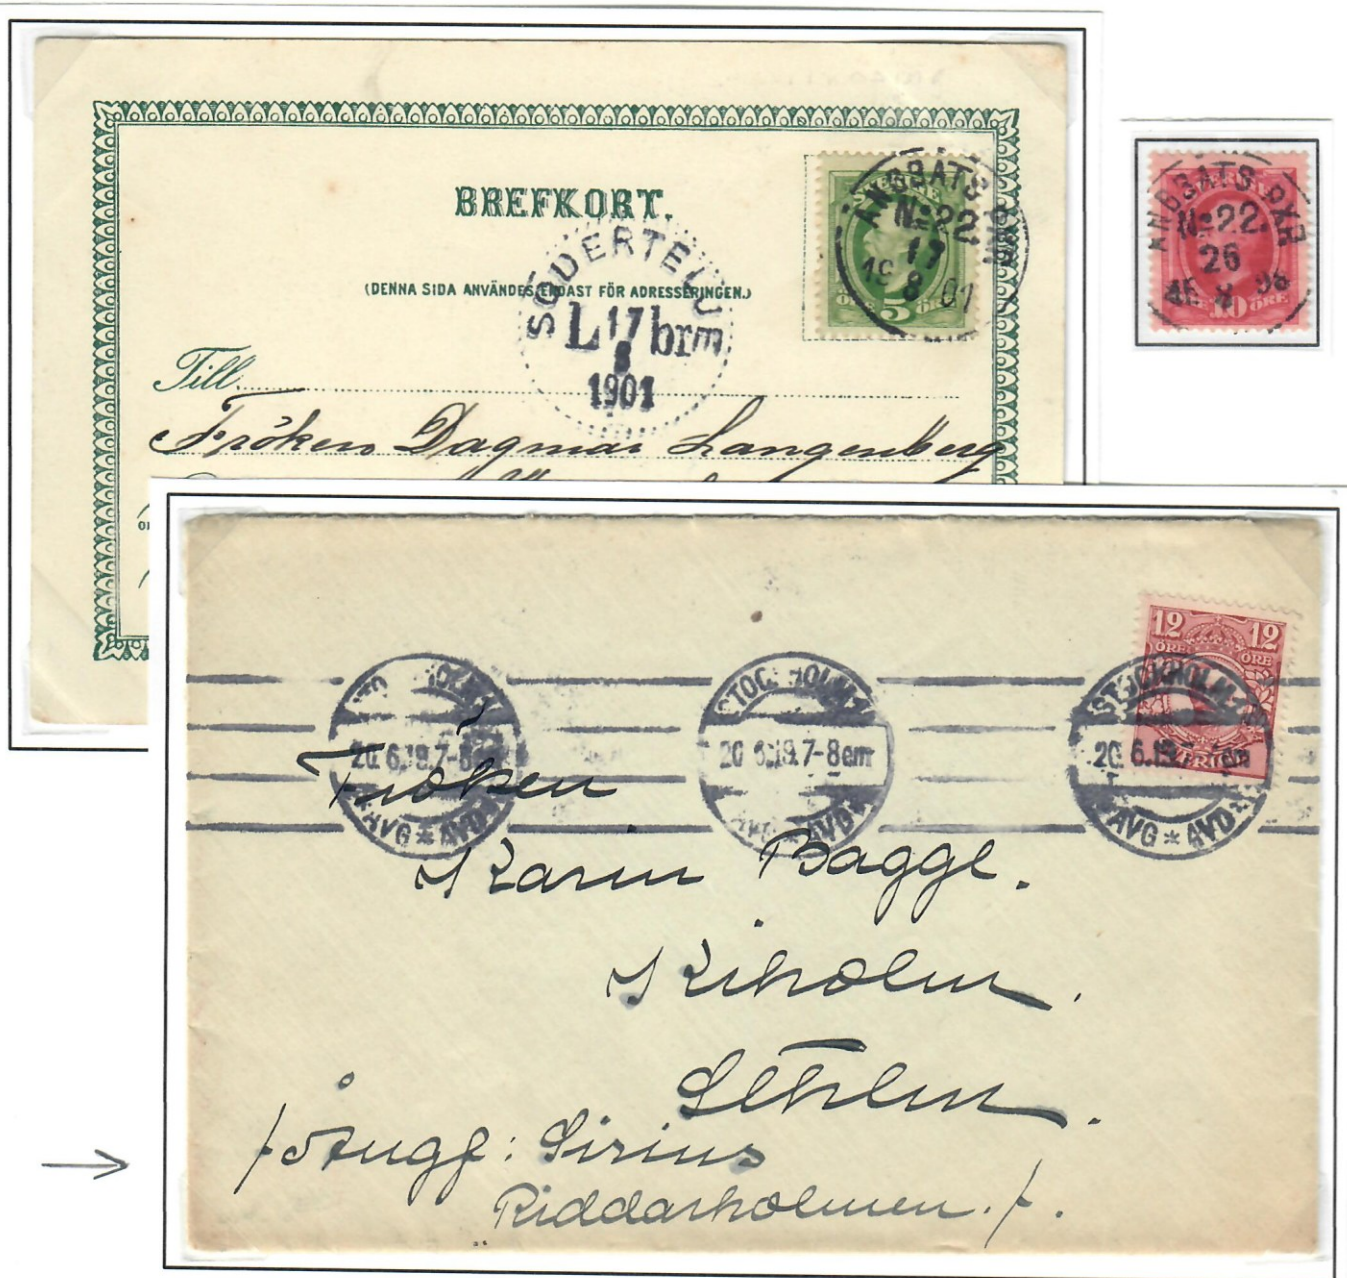 BREFKORT.
(DENNA SIDA ANVÄNDES ENDAST FÖR ADRESSERINGEN.)
SÖDERTELJE
L 17 br
8
1901
5 ÖRE
ÅNGBÅTS PXP
No 22.
17
19 8 01
Till
Fröken Dagmar Langenberg
ÅNGBÅTS PXP
No 22.
26
10 ÖRE
12 12
ÖRE ÖRE
SVERIGE
STOCKHOLM 1
20.6.19.7-8em
AVG * AVD
STOCKHOLM 1
20.6.19.7-8em
AVG * AVD
STOCKHOLM 1
20.6.19.
AVG * AVD
Fröken
Karin Bagge.
Kiholm.
Sthlm.
/Ångf: Sirius
Riddarholmen./.